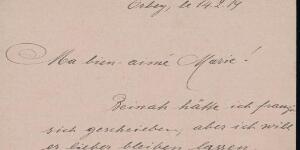 Orbey, le 14.2.19
Ma bien-aimé Marie!
Beinah hätte ich franzö
sich geschrieben, aber ich will
es lieber bleiben lassen.